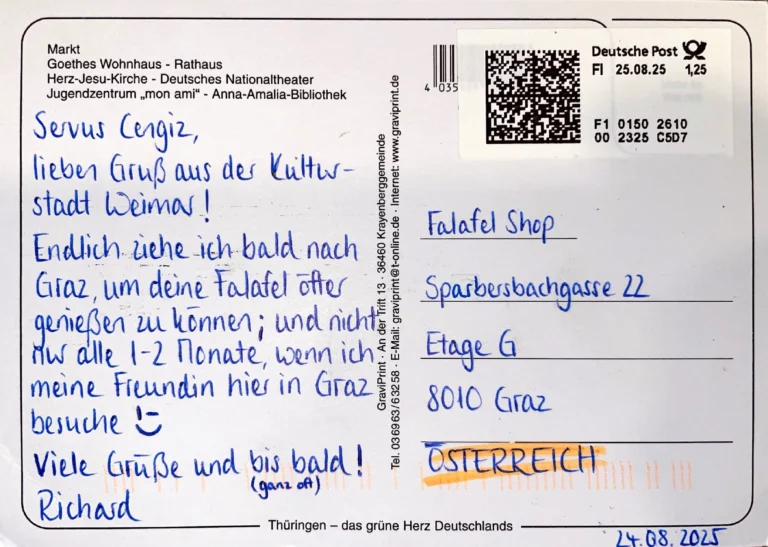 Markt
Goethes Wohnhaus - Rathaus
Herz-Jesu-Kirche - Deutsches Nationaltheater
Jugendzentrum „mon ami“ - Anna-Amalia-Bibliothek
Servus Cengiz,
lieben Gruß aus der Kultur-
stadt Weimar!
Endlich ziehe ich bald nach
Graz, um deine Falafel öfter
genießen zu können; und nicht
nur alle 1-2 Monate, wenn ich
meine Freundin hier in Graz
besuche
Viele Grüße und bis bald!
(ganz oft)
Richard
GraviPrint · An der Trift 13 · 36460 Krayenberggemeinde
Tel. 036963/63258 · E-Mail: graviprint@t-online.de · Internet: www.graviprint.de
4 035
Deutsche Post
FI 25.08.25 1,25
F1 0150 2610
00 2325 C5D7
Falafel Shop
Sparbersbachgasse 22
Etage G
8010 Graz
ÖSTERREICH
Thüringen – das grüne Herz Deutschlands
24.08.2025